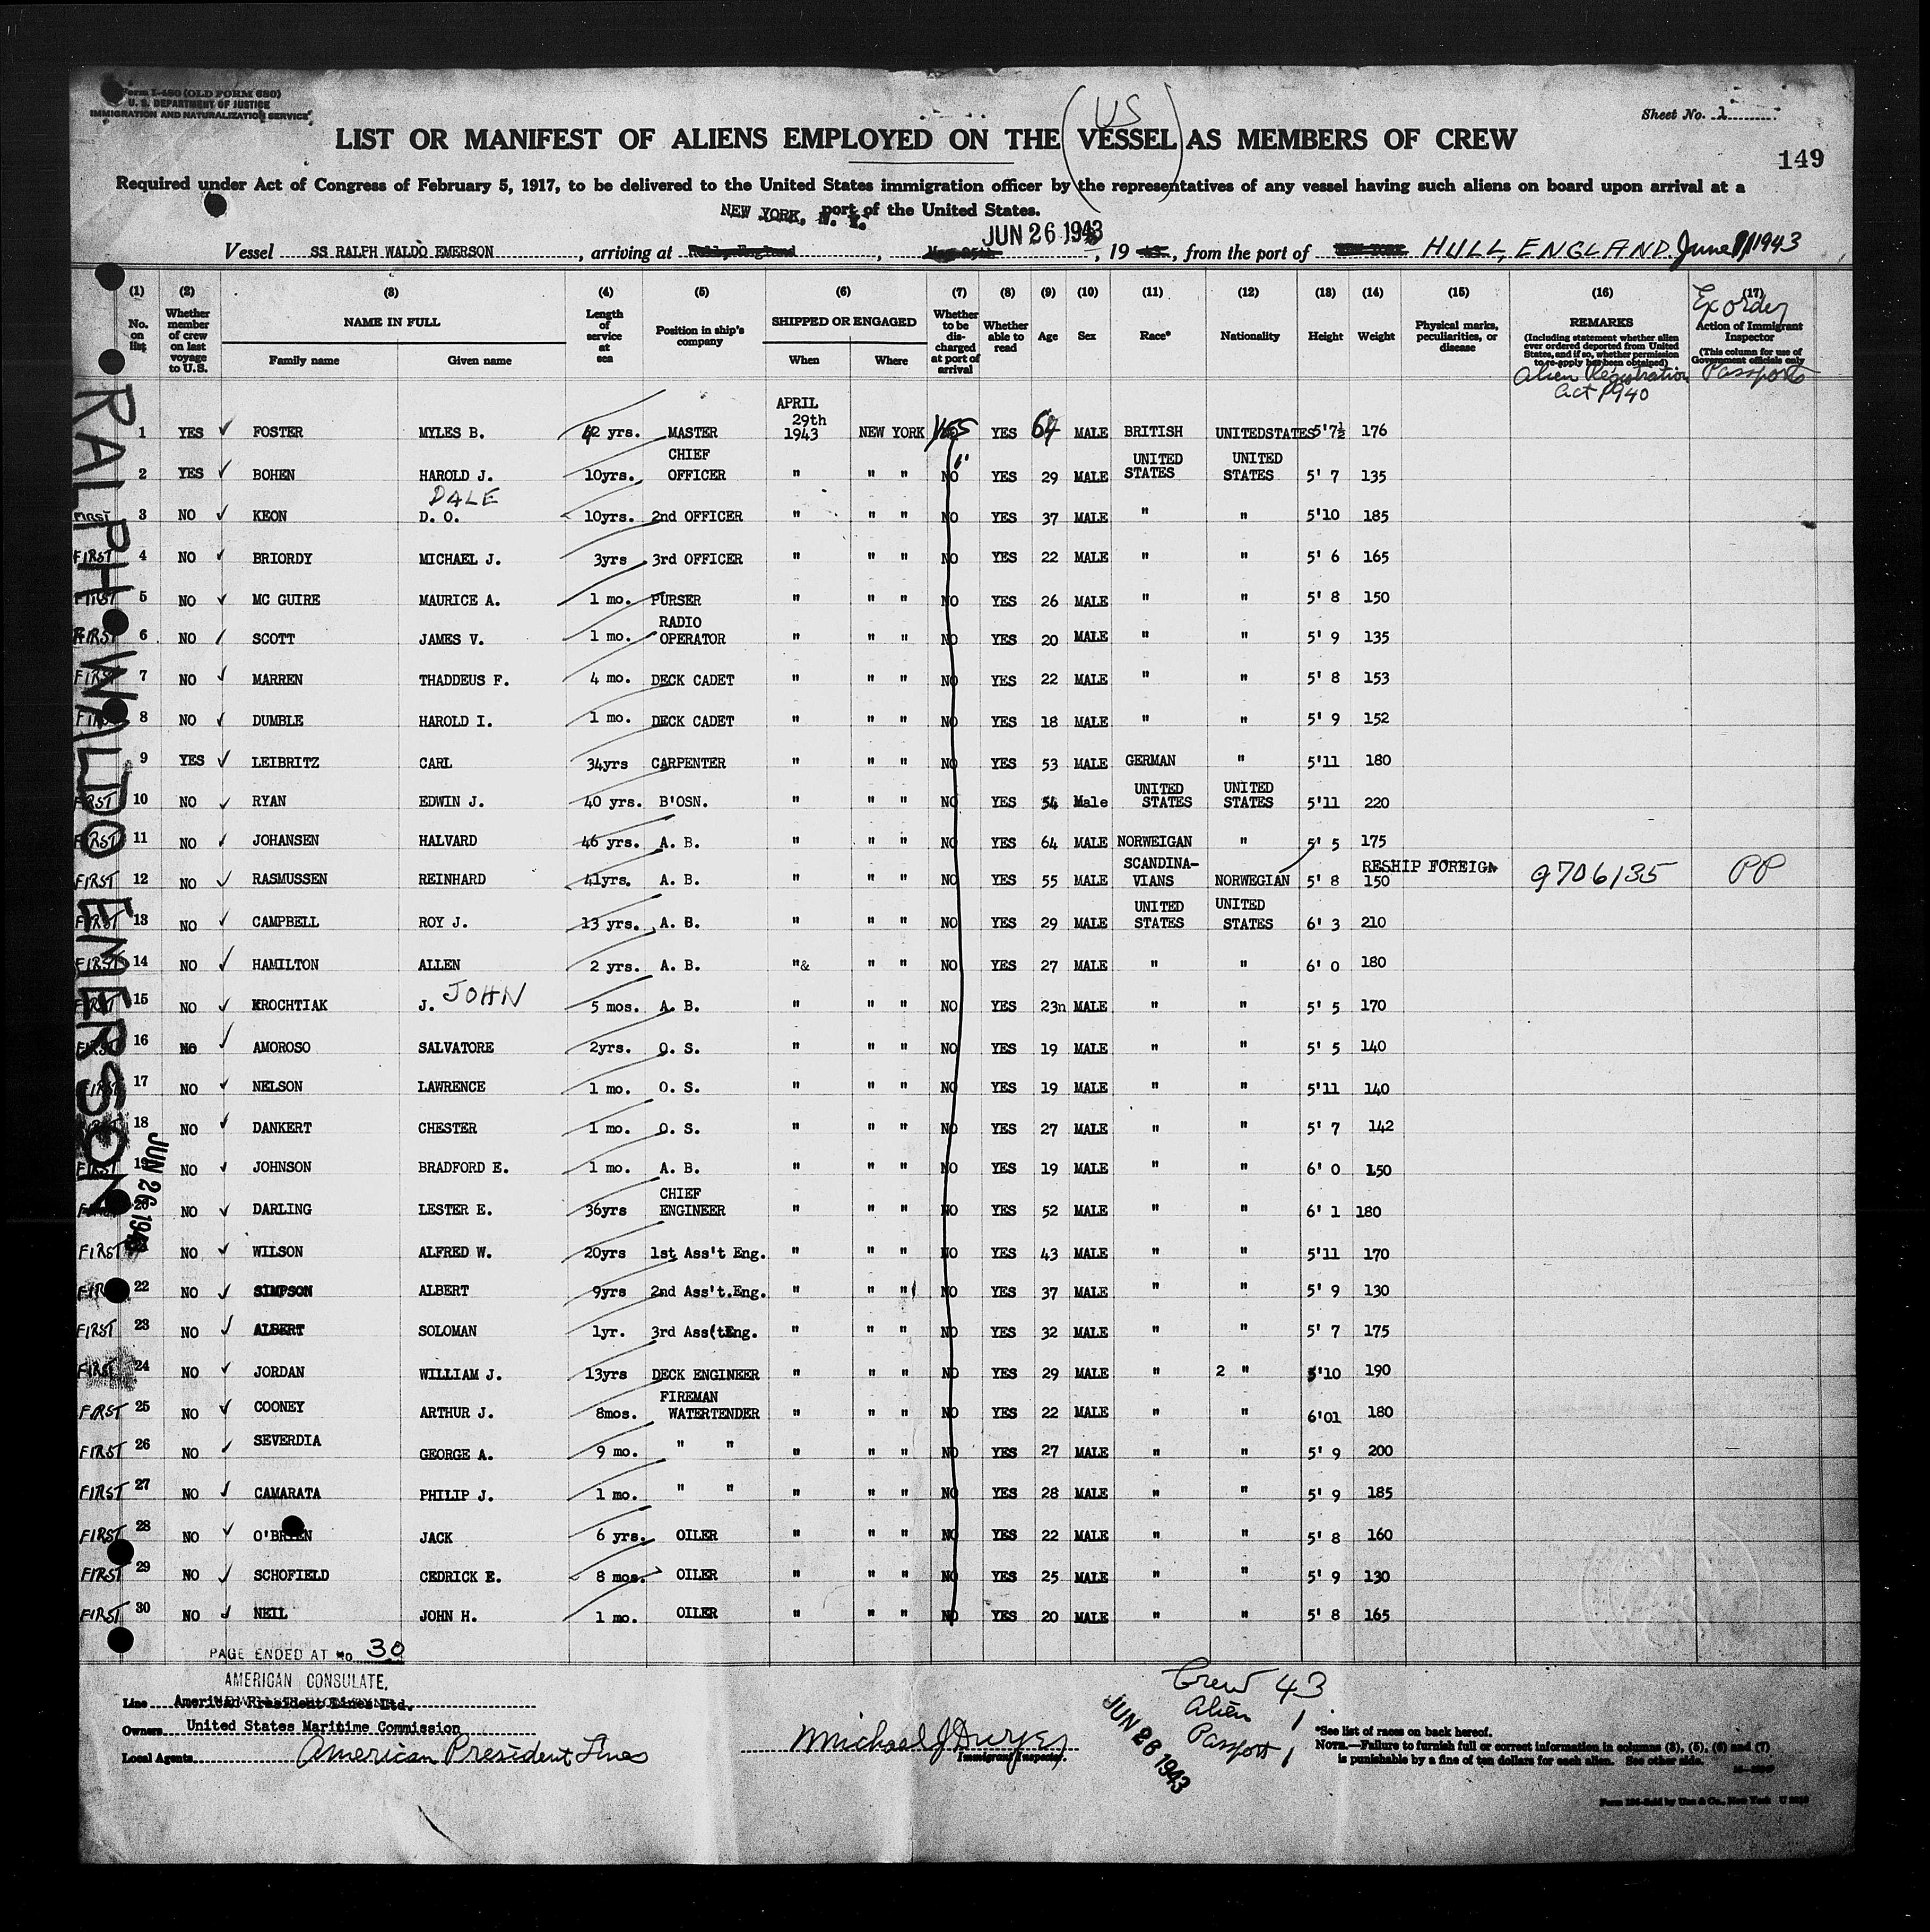 Form I-480 (OLD FORM 680)
U. S. DEPARTMENT OF JUSTICE
IMMIGRATION AND NATURALIZATION SERVICE
Sheet No. 1
US
LIST OR MANIFEST OF ALIENS EMPLOYED ON THE (VESSEL) AS MEMBERS OF CREW
149
Required under Act of Congress of February 5, 1917, to be delivered to the United States immigration officer by the representatives of any vessel having such aliens on board upon arrival at a
port of the United States.
NEW YORK, N. Y.
JUN 26 1943
Vessel SS RALPH WALDO EMERSON, arriving at Hull, England, May 25th, 19 43, from the port of NEW YORK HULL, ENGLAND. June 9/1943
(1) (2) (3) (4) (5) (6) (7) (8) (9) (10) (11) (12) (13) (14) (15) (16) (17)
No. on list
Whether member of crew on last voyage to U.S.
NAME IN FULL
Family name Given name
Length of service at sea
Position in ship's company
SHIPPED OR ENGAGED
When Where
Whether to be discharged at port of arrival
Whether able to read
Age
Sex
Race*
Nationality
Height
Weight
Physical marks, peculiarities, or disease
REMARKS
(Including statement whether alien ever ordered deported from United States, and if so, whether permission to re-apply has been obtained)
Alien Registration Act 1940
Ex order
Action of Immigrant Inspector
(This column for use of Government officials only
Passports
APRIL 29th
1 YES FOSTER MYLES B. 42 yrs. MASTER 1943 NEW YORK YES YES 64 MALE BRITISH UNITEDSTATES 5'7½ 176
2 YES BOHEN HAROLD J. 10yrs. CHIEF OFFICER " " " NO YES 29 MALE UNITED STATES UNITED STATES 5' 7 135
DALE
FIRST 3 NO KEON D. O. 10yrs. 2nd OFFICER " " " NO YES 37 MALE " " 5'10 185
FIRST 4 NO BRIORDY MICHAEL J. 3yrs 3rd OFFICER " " " NO YES 22 MALE " " 5' 6 165
FIRST 5 NO MC GUIRE MAURICE A. 1 mo. PURSER " " " NO YES 26 MALE " " 5' 8 150
FIRST 6 NO SCOTT JAMES V. 1 mo. RADIO OPERATOR " " " NO YES 20 MALE " " 5' 9 135
FIRST 7 NO MARREN THADDEUS F. 4 mo. DECK CADET " " " NO YES 22 MALE " " 5' 8 153
FIRST 8 NO DUMBLE HAROLD I. 1 mo. DECK CADET " " " NO YES 18 MALE " " 5' 9 152
9 YES LEIBRITZ CARL 34yrs CARPENTER " " " NO YES 53 MALE GERMAN " 5'11 180
FIRST 10 NO RYAN EDWIN J. 40 yrs. B'OSN. " " " NO YES 54 Male UNITED STATES UNITED STATES 5'11 220
FIRST 11 NO JOHANSEN HALVARD 46 yrs. A. B. " " " NO YES 64 MALE NORWEIGAN " 5' 5 175
RESHIP FOREIGN
FIRST 12 NO RASMUSSEN REINHARD 41yrs. A. B. " " " NO YES 55 MALE SCANDINA-VIANS NORWEGIAN 5' 8 150 9706135 PP
FIRST 13 NO CAMPBELL ROY J. 13 yrs. A. B. " " " NO YES 29 MALE UNITED STATES UNITED STATES 6' 3 210
FIRST 14 NO HAMILTON ALLEN 2 yrs. A. B. "& " " NO YES 27 MALE " " 6' 0 180
FIRST 15 NO KROCHTIAK J. JOHN 5 mos. A. B. " " " NO YES 23n MALE " " 5' 5 170
FIRST 16 NO AMOROSO SALVATORE 2yrs. O. S. " " " NO YES 19 MALE " " 5' 5 140
FIRST 17 NO NELSON LAWRENCE 1 mo. O. S. " " " NO YES 19 MALE " " 5'11 140
18 NO DANKERT CHESTER 1 mo. O. S. " " " NO YES 27 MALE " " 5' 7 142
FIRST 19 NO JOHNSON BRADFORD E. 1 mo. A. B. " " " NO YES 19 MALE " " 6' 0 150
20 NO DARLING LESTER E. 36yrs CHIEF ENGINEER " " " NO YES 52 MALE " " 6' 1 180
FIRST NO WILSON ALFRED W. 20yrs 1st Ass't Eng. " " " NO YES 43 MALE " " 5'11 170
FIRST 22 NO SIMPSON ALBERT 9yrs 2nd Ass't.Eng. " " " NO YES 37 MALE " " 5' 9 130
FIRST 23 NO ALBERT SOLOMAN 1yr. 3rd Ass(tEng. " " " NO YES 32 MALE " " 5' 7 175
FIRST 24 NO JORDAN WILLIAM J. 13yrs DECK ENGINEER " " " NO YES 29 MALE " 2 " 5'10 190
FIRST 25 NO COONEY ARTHUR J. 8mos. FIREMAN WATERTENDER " " " NO YES 22 MALE " " 6'01 180
FIRST 26 NO SEVERDIA GEORGE A. 9 mo. " " " " " NO YES 27 MALE " " 5' 9 200
FIRST 27 NO CAMARATA PHILIP J. 1 mo. " " " " " NO YES 28 MALE " " 5' 9 185
FIRST 28 NO O'BRIEN JACK 6 yrs. OILER " " " NO YES 22 MALE " " 5' 8 160
FIRST 29 NO SCHOFIELD CEDRICK E. 8 mos. OILER " " " NO YES 25 MALE " " 5' 9 130
FIRST 30 NO NEIL JOHN H. 1 mo. OILER " " " NO YES 20 MALE " " 5' 8 165
RALPH WALDO EMERSON
JUN 26 1943
PAGE ENDED AT No. 30
AMERICAN CONSULATE,
Line American President Lines Ltd.
Owners United States Maritime Commission
Local Agents American President Lines
Michael J Dwyer
Immigrant Inspector.
JUN 26 1943
Crew 43
Alien 1
Passport 1
*See list of races on back hereof.
NOTE.—Failure to furnish full or correct information in columns (3), (5), (6) and (7)
is punishable by a fine of ten dollars for each alien. See other side.